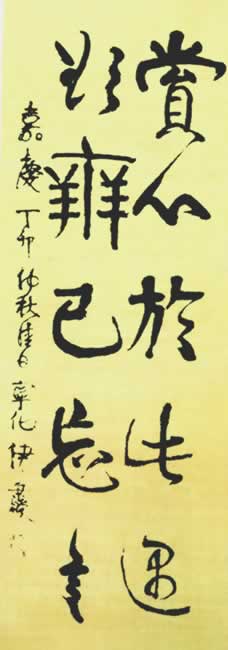 賞心於此遇
欲辯已忘言
嘉慶丁卯仲秋佳日寧化伊秉綬